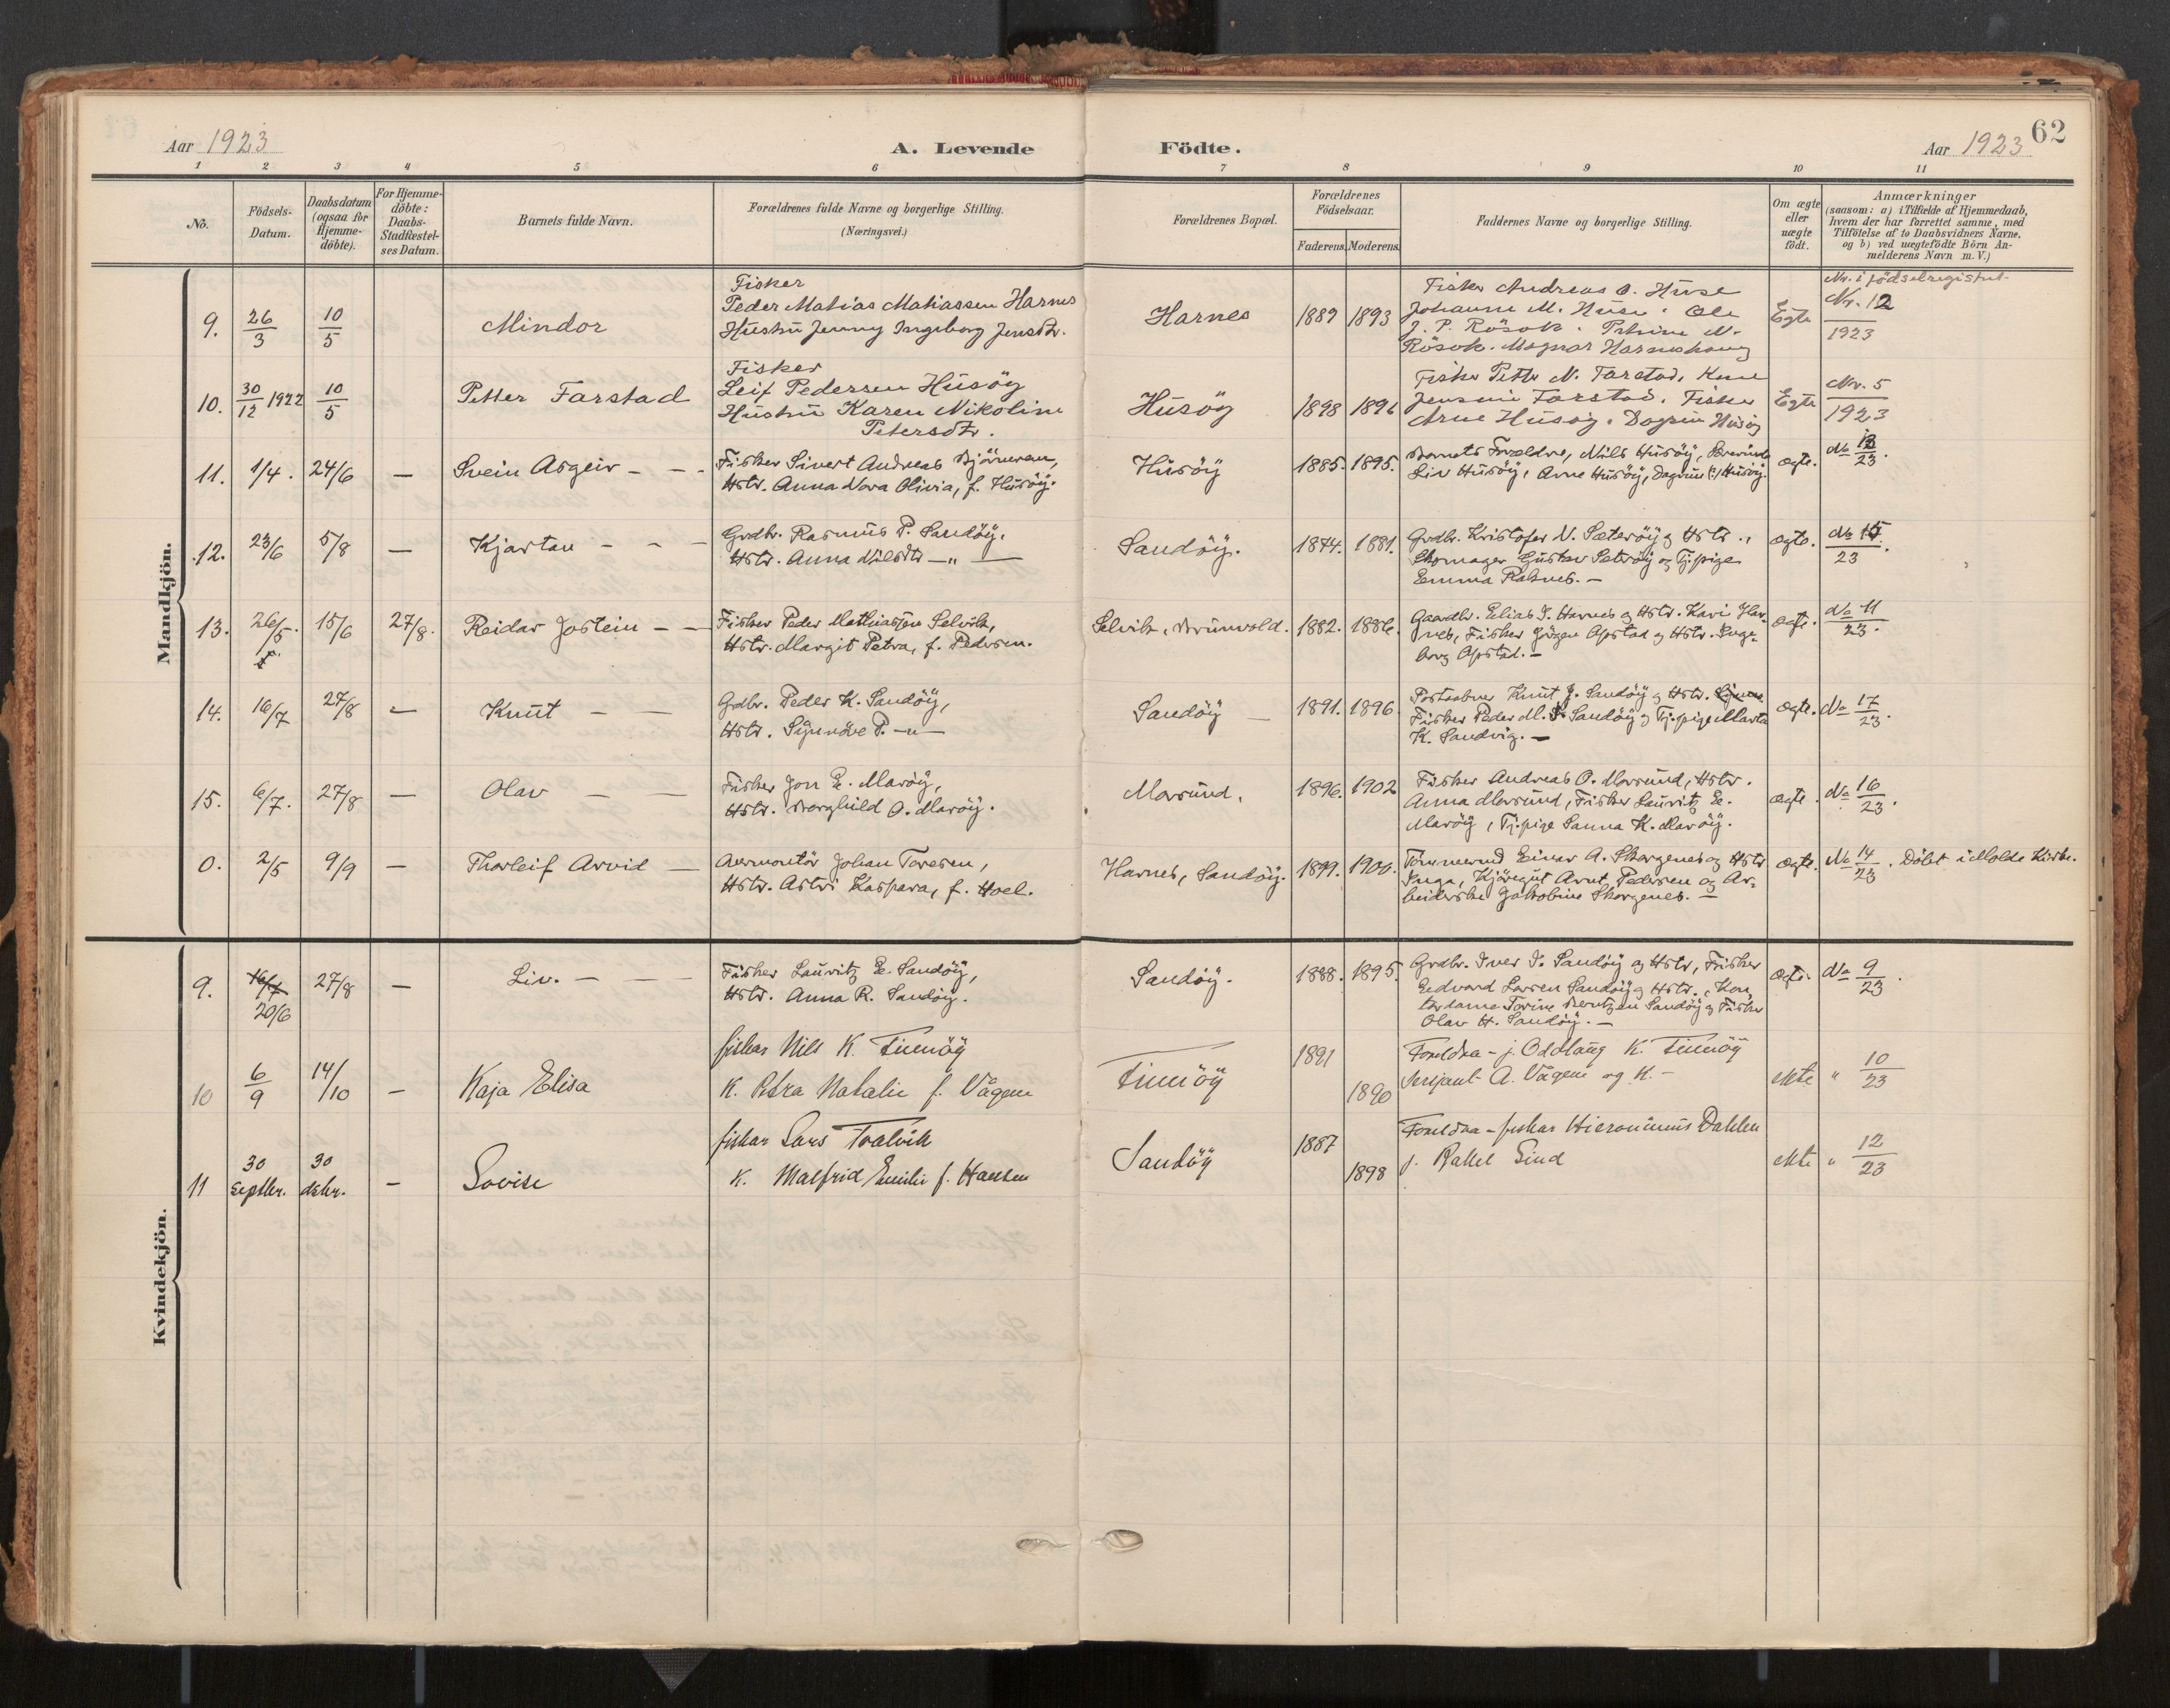 Aar 1923
A. Levende
Födte.
Aar 1923
62
1 2 3 4 5 6 7 8 9 10 11
No.
Födsels-
Datum.
Daabsdatum
(ogsaa for
Hjemme-
döbte).
For Hjemme-
döbte:
Daabs-
Stadfæstel-
ses Datum.
Barnets fulde Navn.
Forældrenes fulde Navne og borgerlige Stilling.
(Næringsvei.)
Forældrenes Bopæl.
Forældrenes
Födselsaar.
Faderens. Moderens.
Faddernes Navne og borgerlige Stilling.
Om ægte
eller
uægte
födt.
Anmærkninger
(saasom: a) i Tilfælde af Hjemmedaab,
hvem der har forrettet samme, med
Tilföielse af to Daabsvidners Navne.
og b) ved uægtefödte Börn An-
melderens Navn m. V.)
Mandkjön.
9.
26/3
10/5
Mindor
Fisker
Peder Matias Matiassen Harnes
Hustru Jenny Ingeborg Jensdtr.
Harnes
1889 1893
Fisker Andreas O. Huse
Johanne M. Huse. Ole
J. P. Rösok. Petrine N.
Rösok. Magnar Harneshaug
Egte
Nr. i födselregistret
Nr. 12
1923
10.
30/12 1922
10/5
Petter Farstad
Fisker
Leif Pedersen Husöy
Hustru Karen Nikoline
Petersdtr.
Husöy
1898 1896
Fisker Petter N. Farstad, Kone
Jensine Farstad. Fisker
Arne Husöy. Dagrun Husöy
Egte
Nr. 5
1923
11.
1/4.
24/6
—
Svein Asgeir - - -
Fisker Sivert Andreas Björneren,
Hstr. Anna Nora Olivia, f. Husöy.
Husöy
1885. 1895.
Barnets Forældre, Nils Husöy,
Liv Husöy, Arne Husöy, Dagrun Husöy.
ægte.
No 13/23.
12.
23/6
5/8
—
Kjartan - - -
Grdbr. Rasmus P. Sandöy,
Hstr. Anna Nilsdtr —"—
Sandöy.
1874. 1881.
Grdbr. Kristofer N. Sæteröy og Hstr.,
Skomager Gustav Seteröy og Tj.pige
Emma Raknes. —
ægte.
No 15/23.
13.
26/5.
15/6
27/8.
Reidar Jostein - —
Fisker Peder Mathiassen Selvik,
Hstr. Margit Petra, f. Pedersen.
Selvik, Brunvold.
1882. 1886.
Gaardbr. Elias J. Harnes og Hstr. Kari Har-
nes, Fisker Jörgen Opstad og Hstr. Inge-
borg Opstad. —
ægte.
No 11/23.
14.
16/7
27/8
—
Knut — —
Grdbr. Peder K. Sandöy,
Hstr. Synnöve P. —"—
Sandöy —
1891. 1896.
Postaabner Knut J. Sandöy og Hstr.
Fisker Peder M. Sandöy og Tj.pige Marta
K. Sandvig. —
ægte.
No 17/23.
15.
6/7.
27/8
—
Olav — —
Fisker Jon E. Maröy,
Hstr. Borghild O. Maröy.
Morsund.
1896. 1902
Fisker Andreas O. Morsund, Hstr.
Anna Morsund, Fisker Lauritz E.
Maröy, Tj.pige Sanna K. Maröy.
ægte.
No 16/23.
0.
2/5
9/9
—
Thorleif Arvid —
Aurmontör Johan Toresen,
Hstr. Astri Kaspara, f. Hoel.
Harnes, Sandöy.
1899. 1900.
Tömmermd Einar A. Skorgenes og Hstr
Inga, Kjöregut Arnt Pedersen og Ar-
beiderske Jakobine Skorgenes. —
ægte.
No 14/23. Döbt i Molde Kirke.
Kvindekjön.
9.
16/7
20/6
27/8
—
Liv. — — —
Fisker Lauritz E. Sandöy,
Hstr. Anna R. Sandöy.
Sandöy.
1888. 1895.
Grdbr. Iver I. Sandöy og Hstr, Fisker
Edvard Larsen Sandöy og Hstr., Kon-
tordame Torine Berntzen Sandöy og Fisker
Olav H. Sandöy. —
ægte.
No 9/23.
10
6/9
14/10
—
Kaja Elisa
fiskar Nils K. Finnöy
K. Petra Natalie f. Vågen
Finnöy
1891
1890
Foreldra - j. Oddlaug K. Finnöy
Serjant A. Vågen og K. -
ekte
" 10/23
11
30 septbr.
30 dsbr.
—
Lovise
fiskar Lars Tralvik
K. Malfrid Emilie f. Hansen
Sandöy
1887
1898
Foreldra - fiskar Hieronimus Dahlen
j. Rakel Lind
ekte
" 12/23